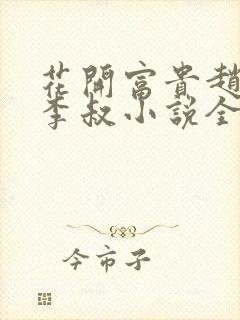 花開富貴趙
李叔小説全
今市子